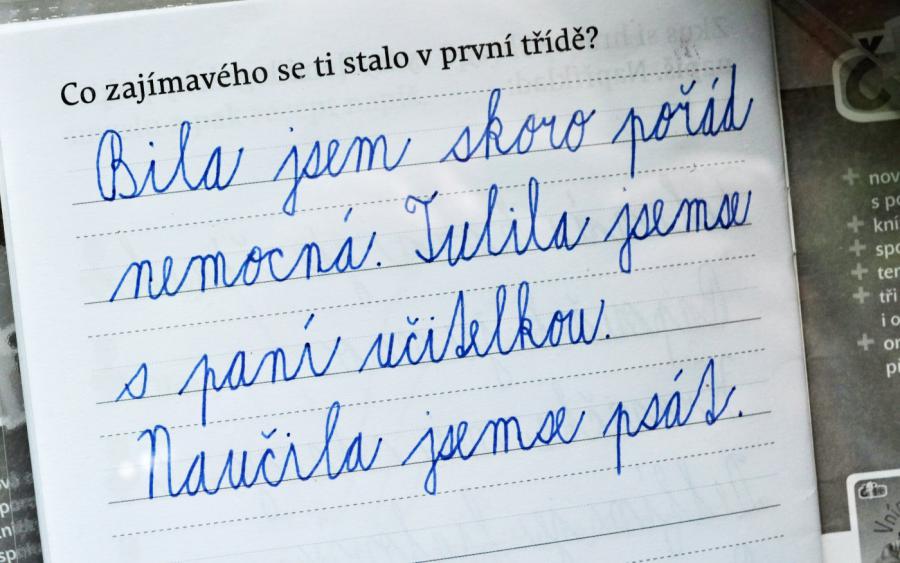 Co zajímavého se ti stalo v první třídě?
Bila jsem skoro pořád
nemocná. Tulila jsemse
s paní učitelkou.
Naučila jsemse psát.
Č
+ nov
s po
+ kní
+ spo
+ ter
+ tři
i o
+ or
př